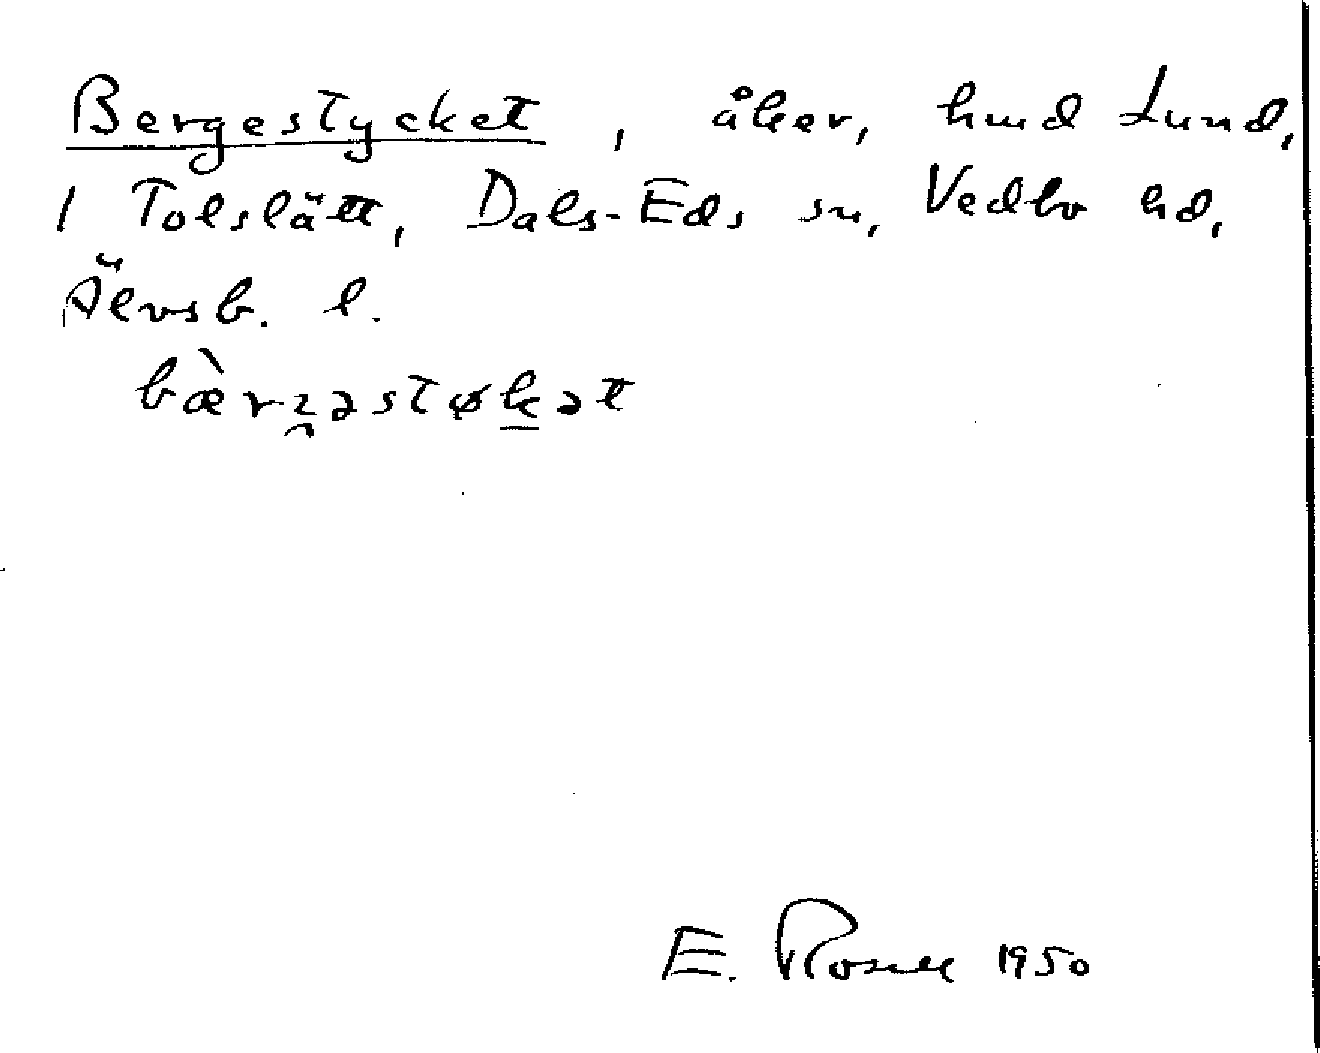 Bergestycket, åker, hmd Lund,
1 Tolslätt, Dals-Eds sn, Vedbo hd,
Älvsb. l.
E. Rosell 1950